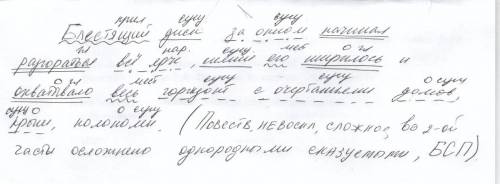 прил сущ. сущ
Блестящий диск за окном начинал
гл нар. сущ. мест гл
разгораться всё ярче, сияние его ширилось и
гл мест сущ сущ сущ
охватывало весь горизонт с очертаниями домов,
сущ сущ
арок, колоколен. (Повеств, невоскл, сложное, во 2-ой
части осложнено однородными сказуемыми, БСП)